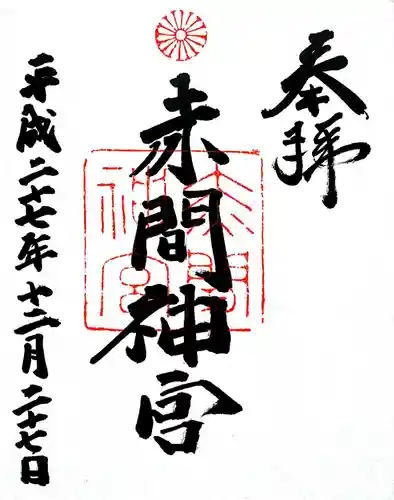 奉拝
赤間神宮
赤間
神宮
平成二十七年十二月二十七日